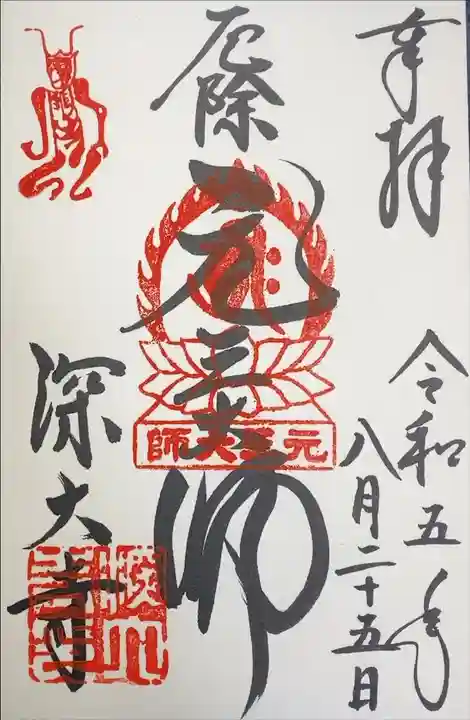 奉拝
令和五年
八月二十五日
厄除
元三大師
元三大師
深大寺
深大寺